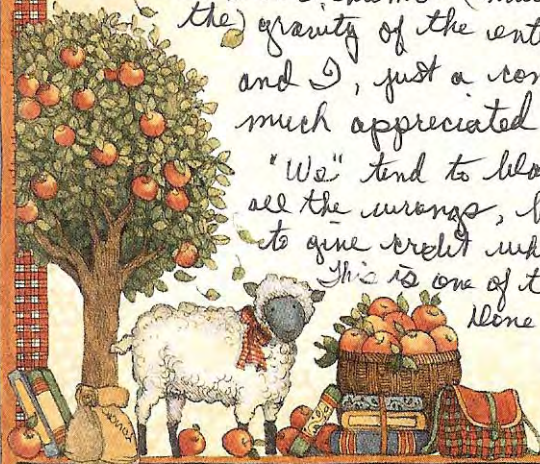 the) gravity of the ent
and I, just a con
much appreciated
"We" tend to bla
all the wrongs, b
to give credit wh
This is one of t
Done